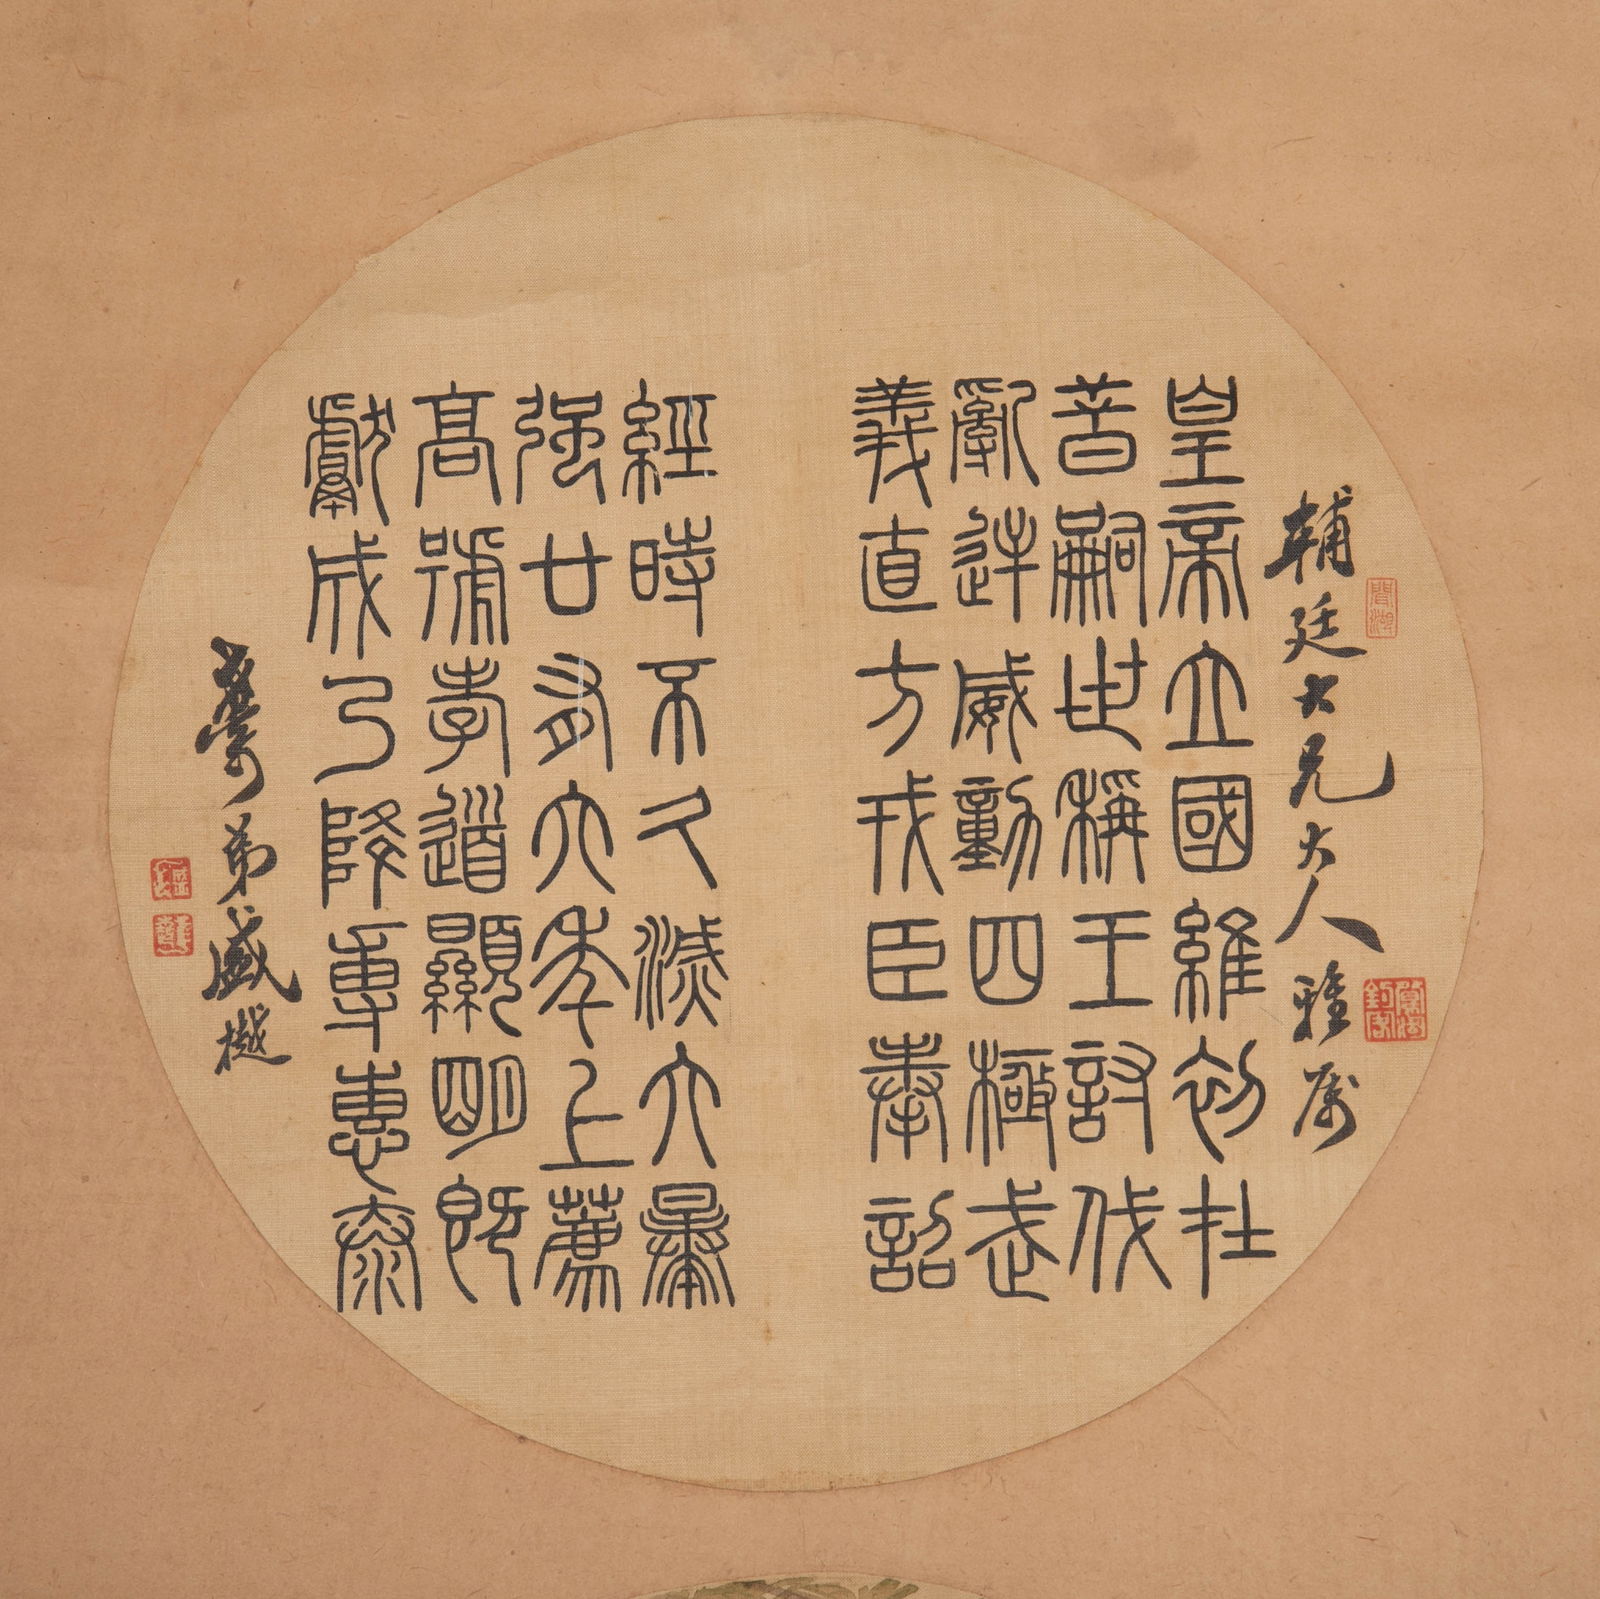 輔廷大兄大人雅屬
皇帝立國維初在
昔嗣世稱王討伐
亂逆威動四極武
義直方戎臣奉詔
經時不久滅六暴
強廿有六年上薦
高號孝道顯明既
獻成乃降專惠泰
弟盛樾